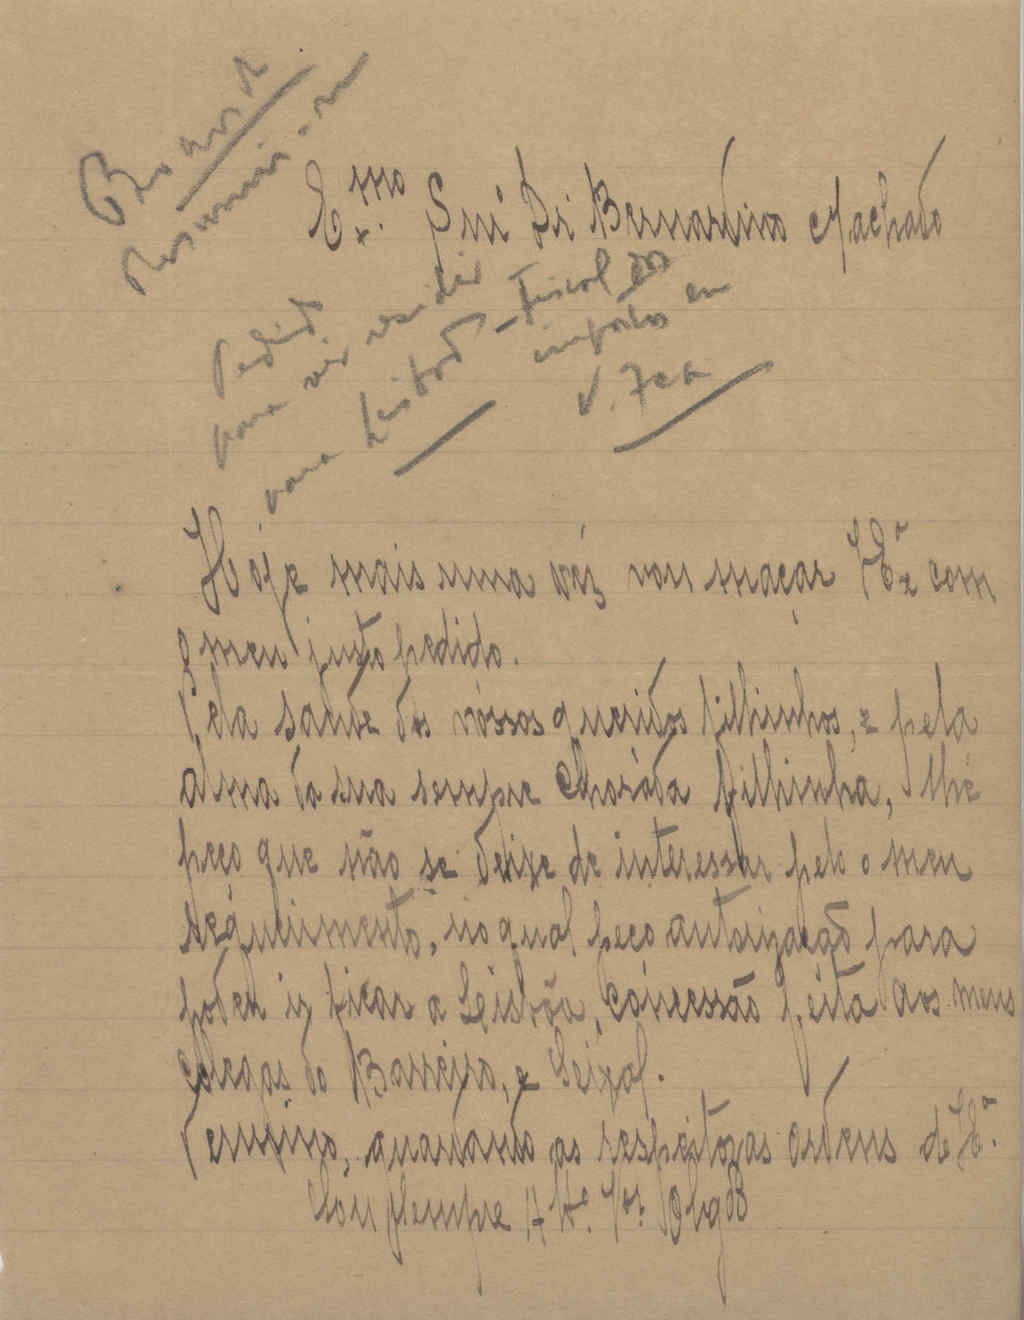 Ex.mo Snr Dr Bernardino Machado
Pedido
para vir residir
para Lisboa - Fiscal dos
impostos em
V. Fca
Hoje mais uma vez vou maçar V Exª com
o meu justo pedido.
Pela saude dos vossos queridos filhinhos, e pela
alma da sua sempre Chorada filhinha, lhe
peço que não se deixe de interessar pelo o meu
requerimento, no qual peço autorização para
poder ir ficar a Lisbôa, concessão feita aos meus
colegas do Barreiro, e Seixal.
Termino, quardando as respeitozas ordens de V Eª.
Sou Sempre Att. Vor. Obgdo